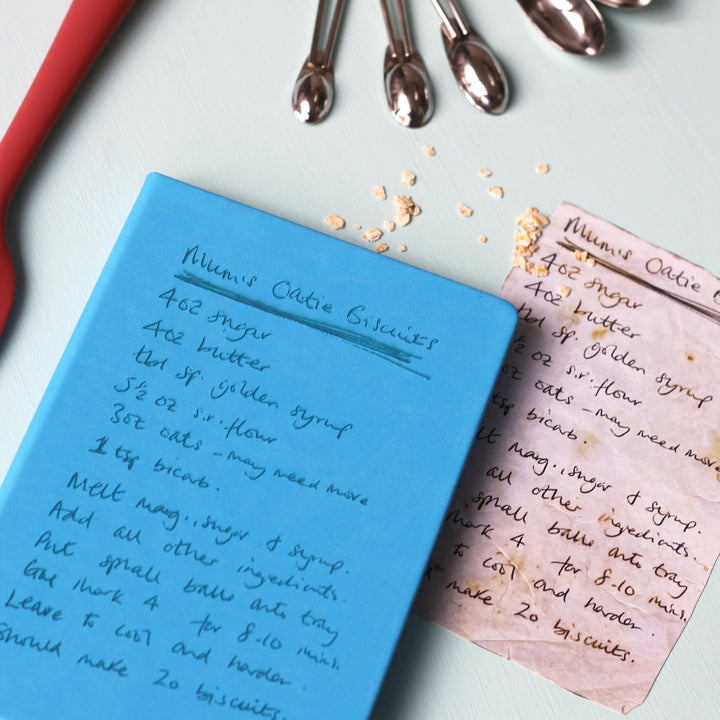 Mum's Oatie Biscuits
4oz sugar
4oz butter
tbl sp. golden syrup
5½ oz s.r. flour
3oz oats - may need more
1 tsp bicarb.
Melt marg., sugar & syrup.
Add all other ingredients.
Put small balls onto tray
Gas Mark 4 for 8-10 mins.
Leave to cool and harden.
Should make 20 biscuits.
Mum's Oatie B
4oz sugar
4oz butter
tbl sp. golden syrup
½ oz s.r. flour
oz oats - may need more
tsp bicarb.
elt marg., sugar & syrup.
all other ingredients.
small balls onto tray
Mark 4 for 8-10 mins.
to cool and harden.
make 20 biscuits.